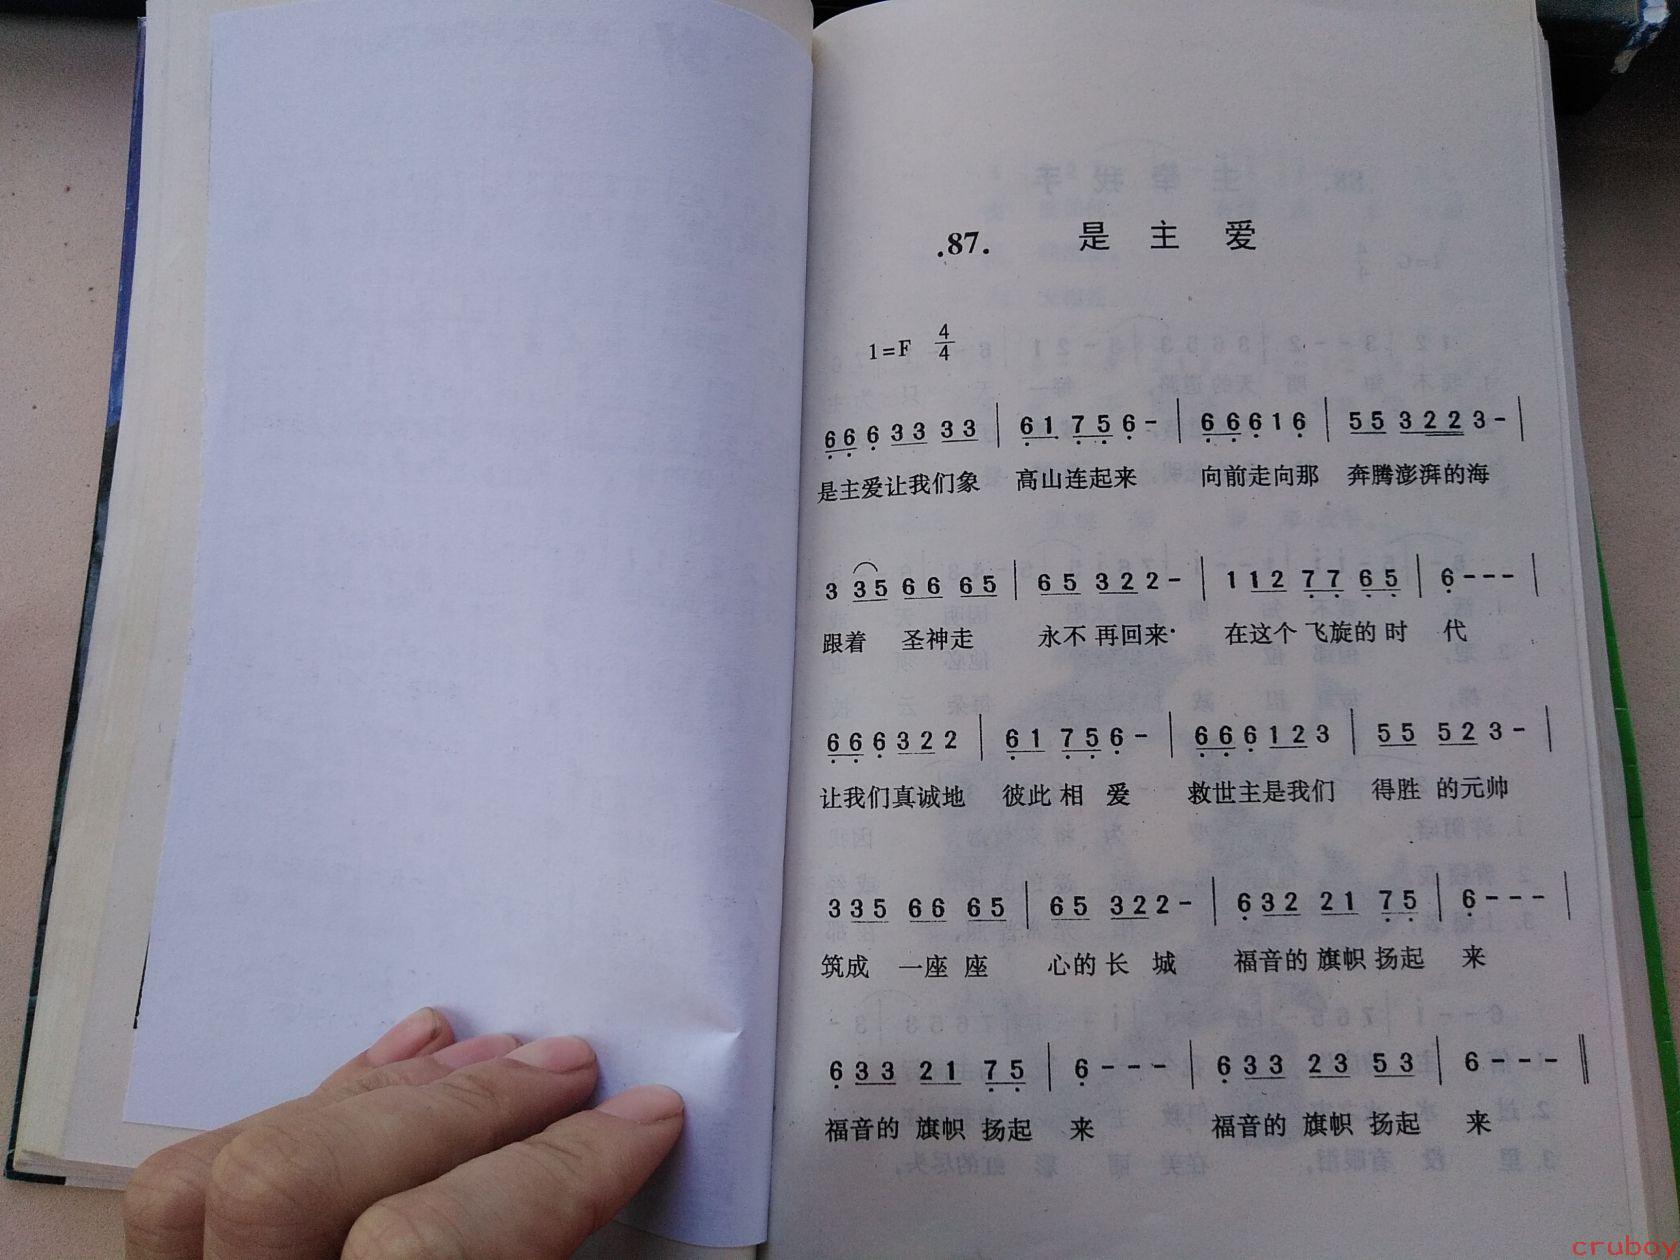 .87. 是 主 爱
1=F 4/4
6 6 6 3 3 3 3 | 6 1 7 5 6 - | 6 6 6 1 6 | 5 5 3 2 2 3 - |
是主爱让我们象 高山连起来 向前走向那 奔腾澎湃的海
3 3 5 6 6 6 5 | 6 5 3 2 2 - | 1 1 2 7 7 6 5 | 6 - - - |
跟着 圣神走 永不 再回来· 在这个 飞旋的 时 代
6 6 6 3 2 2 | 6 1 7 5 6 - | 6 6 6 1 2 3 | 5 5 5 2 3 - |
让我们真诚地 彼此 相 爱 救世主是我们 得胜 的元帅
3 3 5 6 6 6 5 | 6 5 3 2 2 - | 6 3 2 2 1 7 5 | 6 - - - |
筑成 一座 座 心的 长 城 福音的 旗帜 扬起 来
6 3 3 2 1 7 5 | 6 - - - | 6 3 3 2 3 5 3 | 6 - - - ‖
福音的 旗帜 扬起 来 福音的 旗帜 扬起 来
cruboy